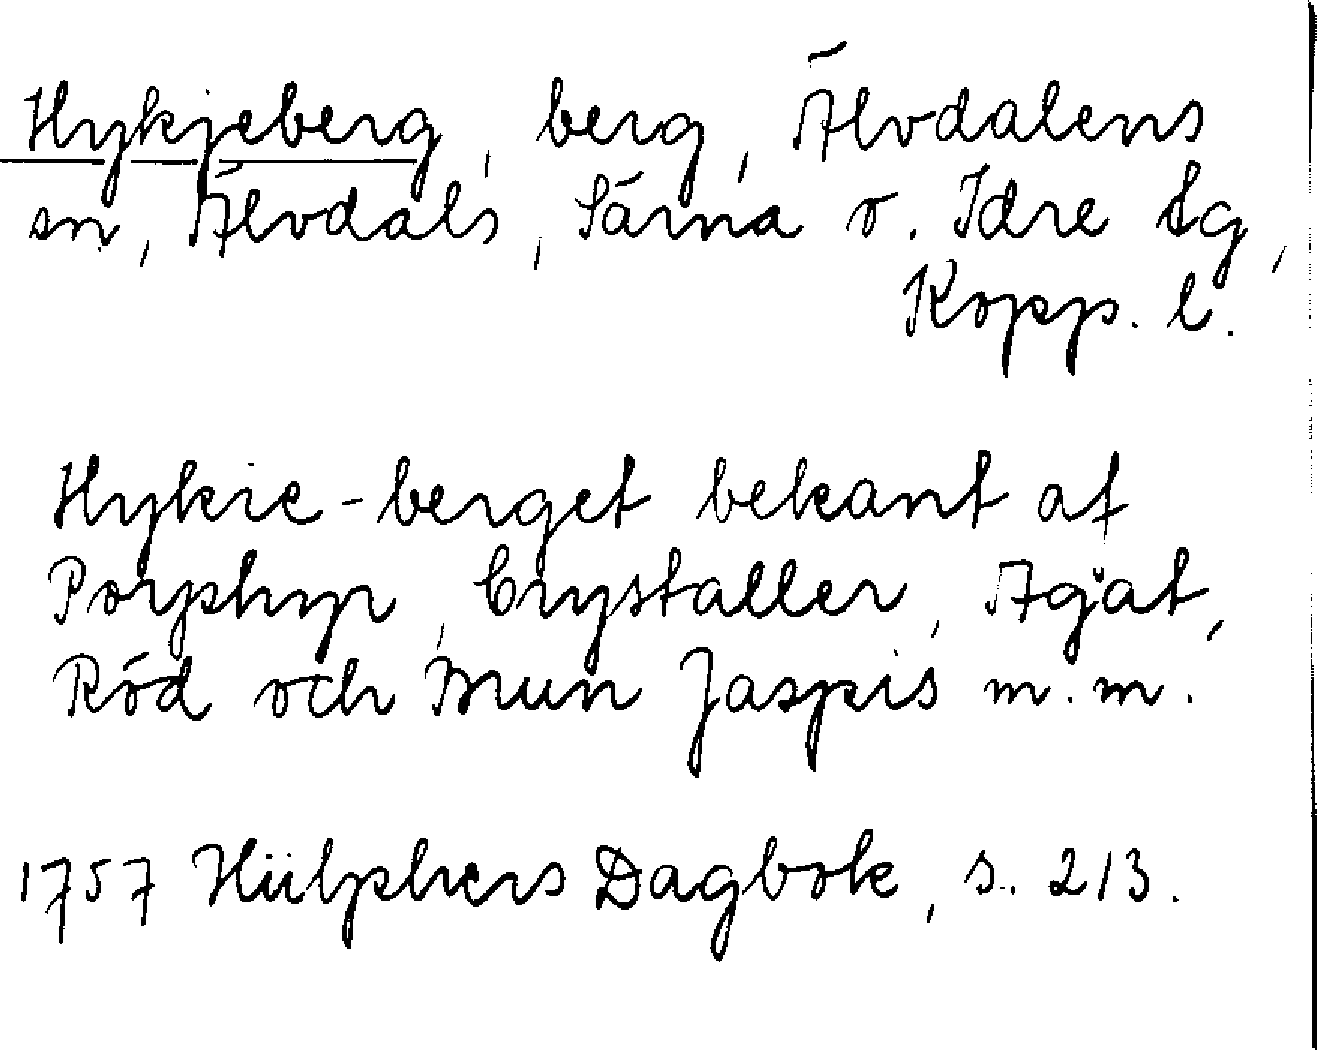 Hykjeberg, berg, Älvdalens
sn, Älvdals, Särna o. Idre tg,
Kopp. l.
Hykie-berget bekant af
Porphyr, Crystaller, Agat,
Röd och Brun Jaspis m.m.
1757 Hülphers Dagbok, s. 213.